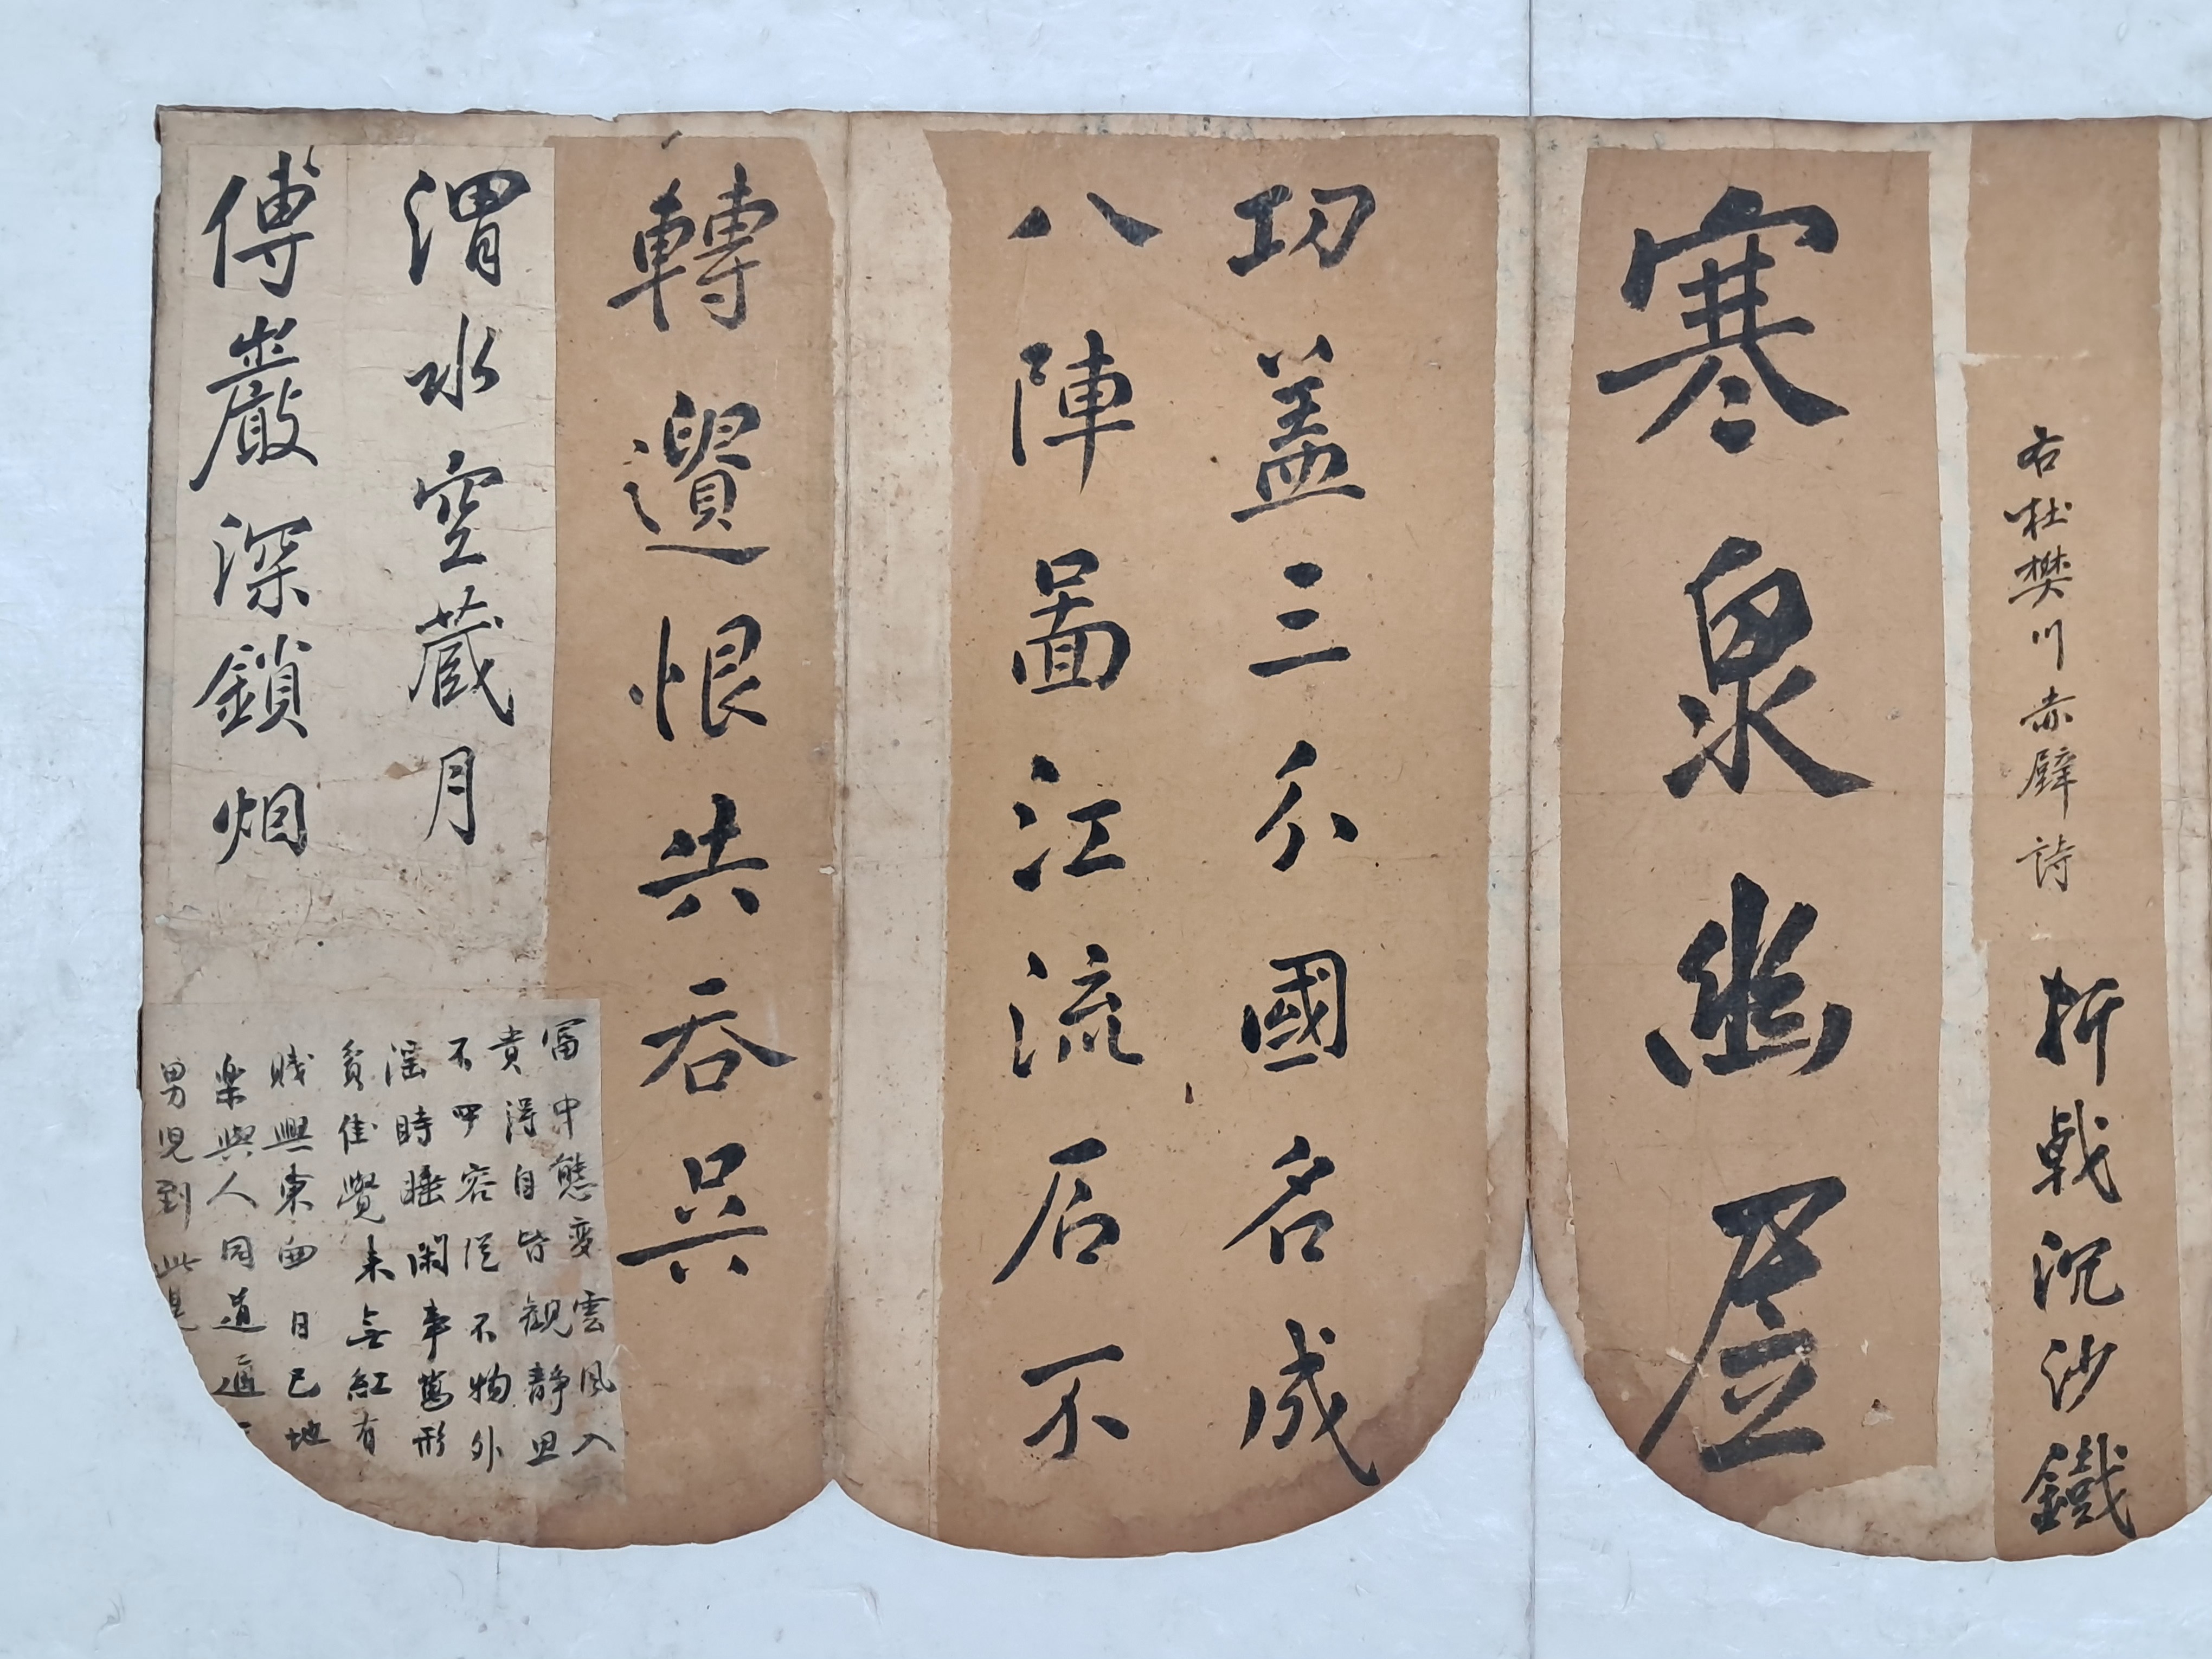 右杜樊川赤壁詩
折戟沉沙鐵
寒泉幽
功盖三分國名成
八陣圖江流石不
轉遺恨共吞吳
渭水空藏月
傅巖深鎖烟
富中態変雲風入
貴得自皆観静思
不四容従不物外
淫時睡閑事萬形
貧佳覺来無紅有
賎興東窗日已地
楽與人同道通
男児到此是